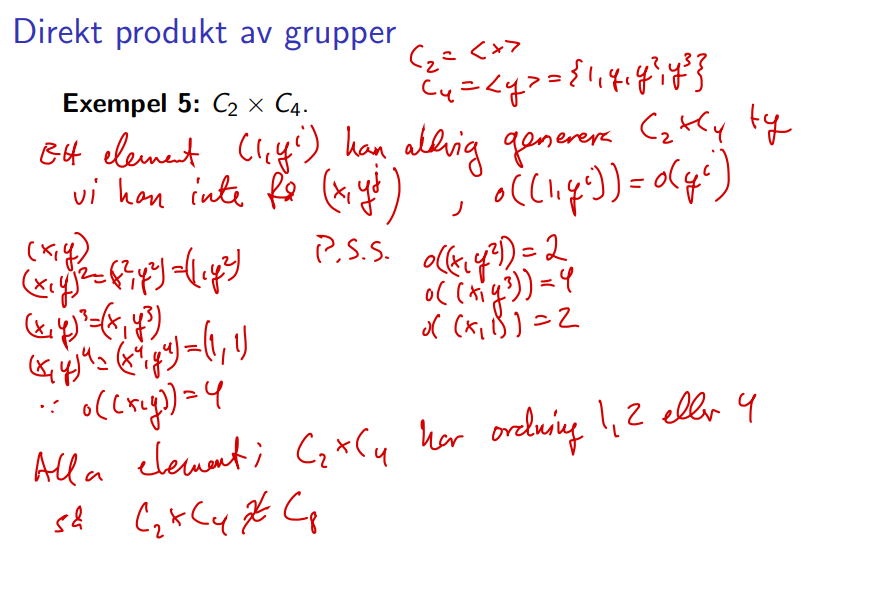 Direkt produkt av grupper
C₂ = <x>
C₄ = <y> = {1, y, y², y³}
Exempel 5: C₂ × C₄.
Ett element (1, yⁱ) kan aldrig generera C₂×C₄ ty
vi kan inte få (x, yʲ) , o((1, yⁱ)) = o(yⁱ)
(x, y)
(x, y)² = (x², y²) = (1, y²)
(x, y)³ = (x, y³)
(x, y)⁴ = (x⁴, y⁴) = (1, 1)
∵ o((x, y)) = 4
P.S.S. o((x, y²)) = 2
o((x, y³)) = 4
o((x, 1)) = 2
Alla element i C₂×C₄ har ordning 1, 2 eller 4
så C₂×C₄ ≇ C₈